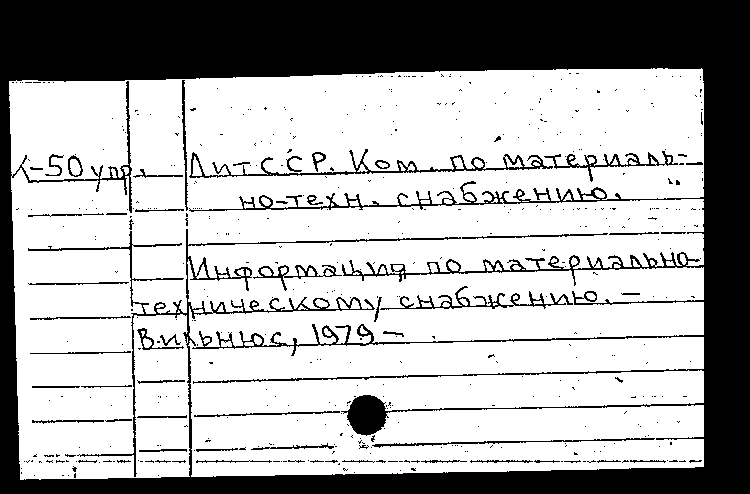 К-50 упр. ЛитССР. Ком. по материаль-
но-техн. снабжению.
Информация по материально-
техническому снабжению. –
Вильнюс, 1979 –